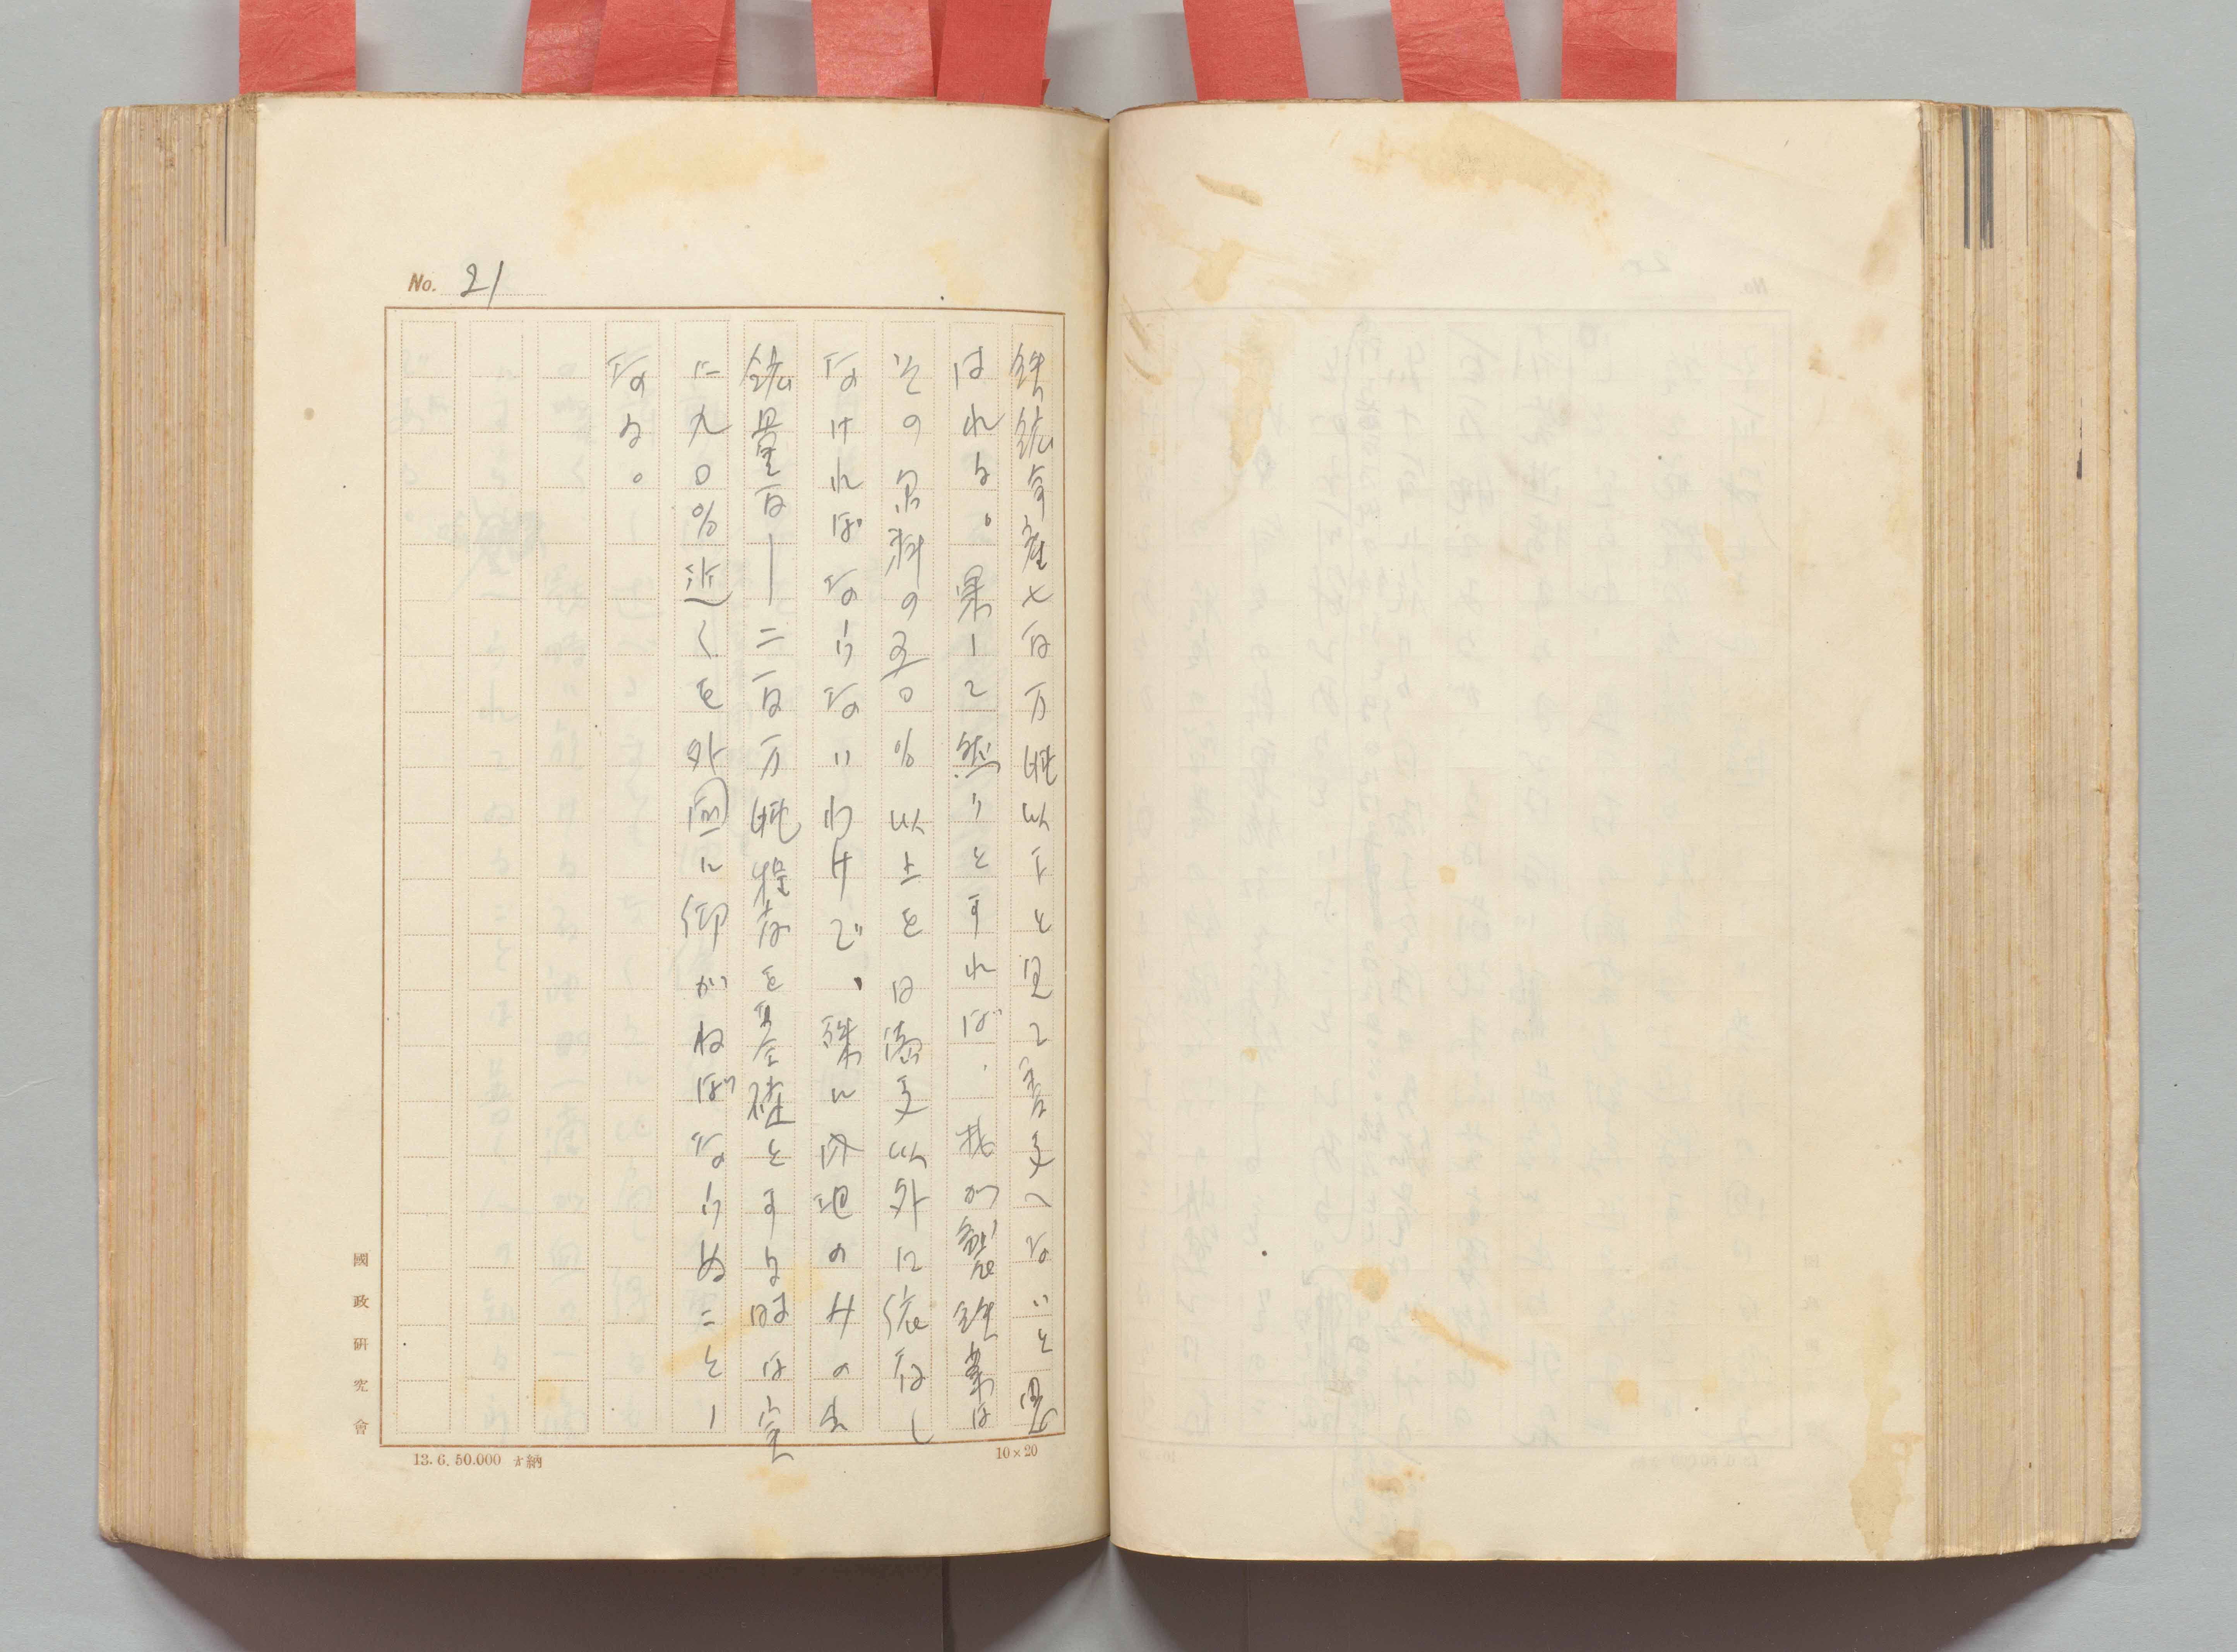 No. 21
鉄鉱年産七百万噸以下と見て差支へないと思
はれる。果して然りとすれば、我が製鉄業は
その原料の五〇%以上を日満支以外に依存し
なければならないわけで、殊に内地のみの出
鉱量百—二百万噸程度を基礎とする時は実
に九〇%近くを外国に仰がねばならぬことゝ
なる。
國政研究會
13.6.50.000 納
10×20